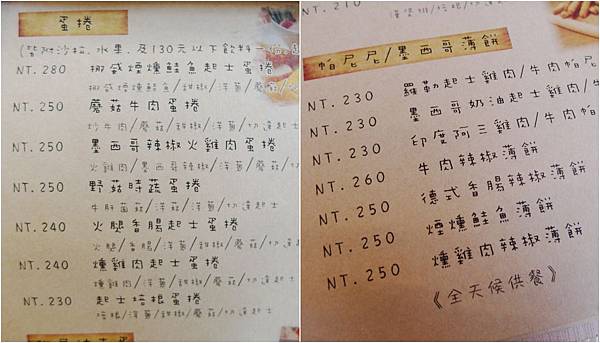 蛋捲
(皆附沙拉、水果、及130元以下飲料一
NT. 280 挪威煙燻鮭魚起士蛋捲
挪威煙燻鮭魚/甜椒/洋蔥/蘑菇
NT. 250 蘑菇牛肉蛋捲
炒牛肉/蘑菇/甜椒/洋蔥/切達起士
NT. 250 墨西哥辣椒火雞肉蛋捲
火雞肉/墨西哥辣椒/洋蔥/蘑菇/切
NT. 250 野菇時蔬蛋捲
牛肝菌菇/洋菇/洋蔥/切達起士
NT. 240 火腿香腸起士蛋捲
火腿/香腸/洋蔥/甜椒/蘑菇/切達
NT. 240 燻雞肉起士蛋捲
燻雞肉/洋蔥/甜椒/蘑菇/切達起士
NT. 230 起士培根蛋捲
培根/洋蔥/甜椒/蘑菇/切達起士
NT. 210
帕尼尼/墨西哥薄餅
NT. 230 羅勒起士雞肉/牛肉帕尼
NT. 230 墨西哥奶油起士雞肉/牛
NT. 230 印度阿三雞肉/牛肉帕
NT. 260 牛肉辣椒薄餅
NT. 250 德式香腸辣椒薄餅
NT. 250 煙燻鮭魚薄餅
NT. 250 燻雞肉辣椒薄餅
《全天候供餐》